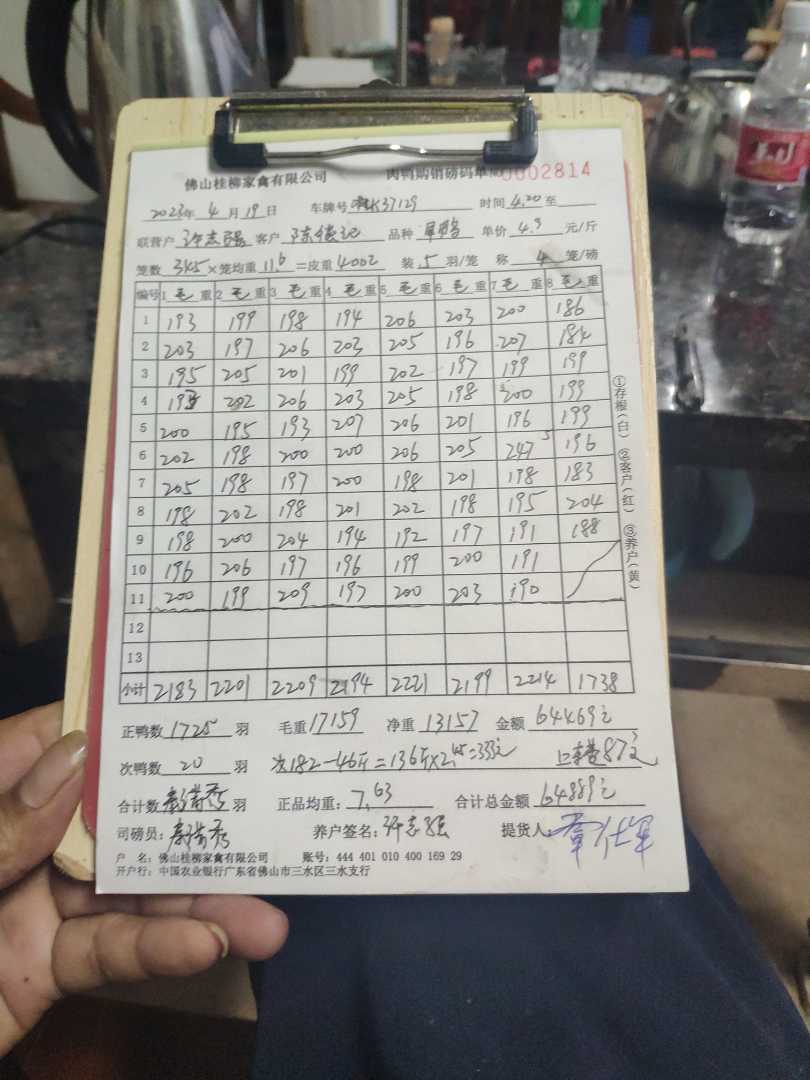 佛山桂柳家禽有限公司 肉鸭购销磅码单 0002814
2023年 4月19日 车牌号 K37129 时间 4.20 至
联营户 许志强 客户 陈德记 品种 单价 4.9 元/斤
笼数 345 × 笼均重 11.6 = 皮重 4002 装 5 羽/笼 称 4 笼/磅
编号 1 毛重 2 毛重 3 毛重 4 毛重 5 毛重 6 毛重 7 毛重 8 毛重
1 193 199 198 194 206 203 200 186
2 203 197 206 203 205 196 207 184
3 195 205 201 199 202 197 199 199
4 202 206 203 205 198 200 199
5 200 195 193 207 206 201 196 199
6 202 198 200 200 206 205 247 5 196
7 205 198 197 200 198 201 198 183
8 198 202 198 201 202 198 195 204
9 198 200 204 194 192 197 191 188
10 196 206 197 196 199 200 191
11 200 199 209 197 200 203 190
12
13
小计 2183 2201 2209 2194 2221 2199 2214 1738
正鸭数 1725 羽 毛重 17159 净重 13157 金额 64469元
次鸭数 20 羽 次182-46斤=136斤×2.45=333元 87元
合计数 羽 正品均重: 7.63 合计总金额 64889元
司磅员: 养户签名: 许志强 提货人
户 名: 佛山桂柳家禽有限公司 账号: 444 401 010 400 169 29
开户行: 中国农业银行广东省佛山市三水区三水支行
①存根(白) ②客户(红) ③养户(黄)